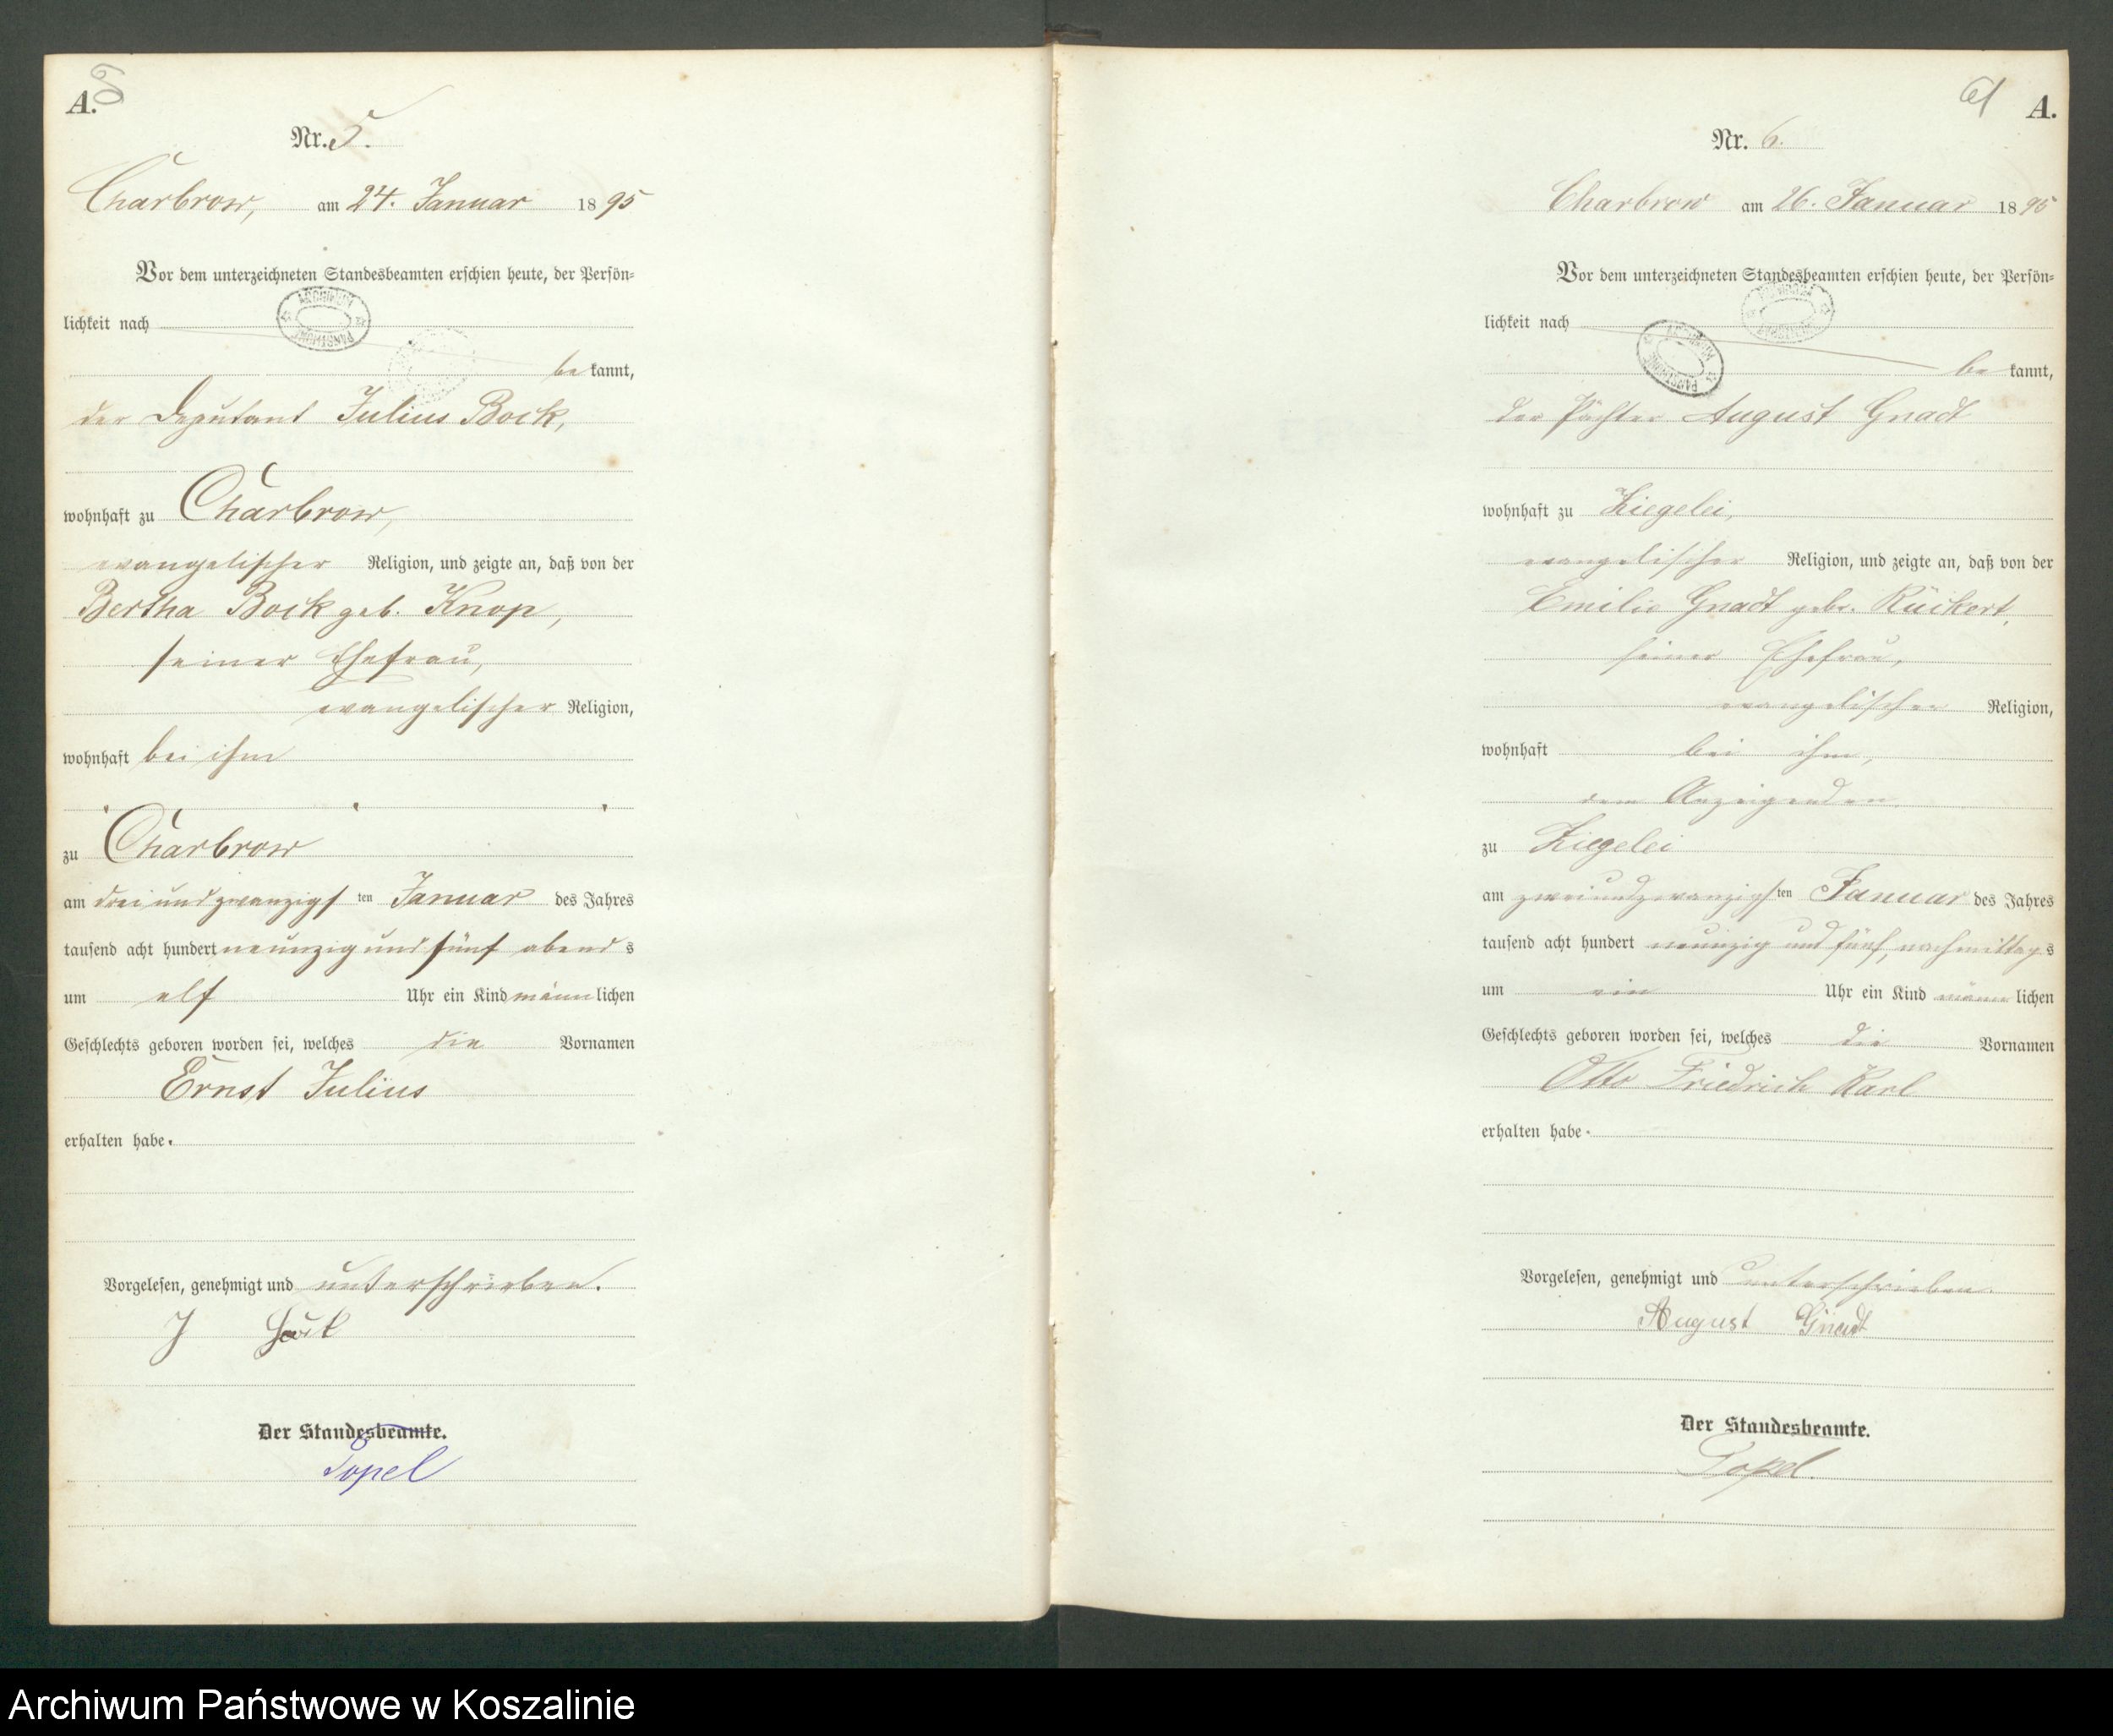 A.
Nr. 5.
Charbrow, am 24. Januar 1895
Vor dem unterzeichneten Standesbeamten erschien heute, der Persön-
lichkeit nach
be kannt,
der Deputant Julius Bock,
wohnhaft zu Charbrow,
evangelischer Religion, und zeigte an, daß von der
Bertha Bock geb. Knop,
seiner Ehefrau,
evangelischer Religion,
wohnhaft bei ihm
zu Charbrow
am drei und zwanzigs ten Januar des Jahres
tausend acht hundert neunzig und fünf abend s
um elf Uhr ein Kind männ lichen
Geschlechts geboren worden sei, welches die Vornamen
Ernst Julius
erhalten habe.
Vorgelesen, genehmigt und unterschrieben.
J Bock
Der Standesbeamte.
Topel
61 A.
Nr. 6.
Charbrow am 26. Januar 1895
Vor dem unterzeichneten Standesbeamten erschien heute, der Persön-
lichkeit nach
be kannt,
der Pächter August Gnadt
wohnhaft zu Ziegelei,
evangelischer Religion, und zeigte an, daß von der
Emilie Gnadt gebr. Rückert,
seiner Ehefrau,
evangelischer Religion,
wohnhaft bei ihm,
dem Anzeigenden
zu Ziegelei
am zweiundzwanzigs ten Januar des Jahres
tausend acht hundert neunzig und fünf, nachmittag s
um ein Uhr ein Kind männ lichen
Geschlechts geboren worden sei, welches die Vornamen
Otto Friedrich Karl
erhalten habe.
Vorgelesen, genehmigt und unterschrieben.
August Gnadt
Der Standesbeamte.
Topel.
Archiwum Państwowe w Koszalinie